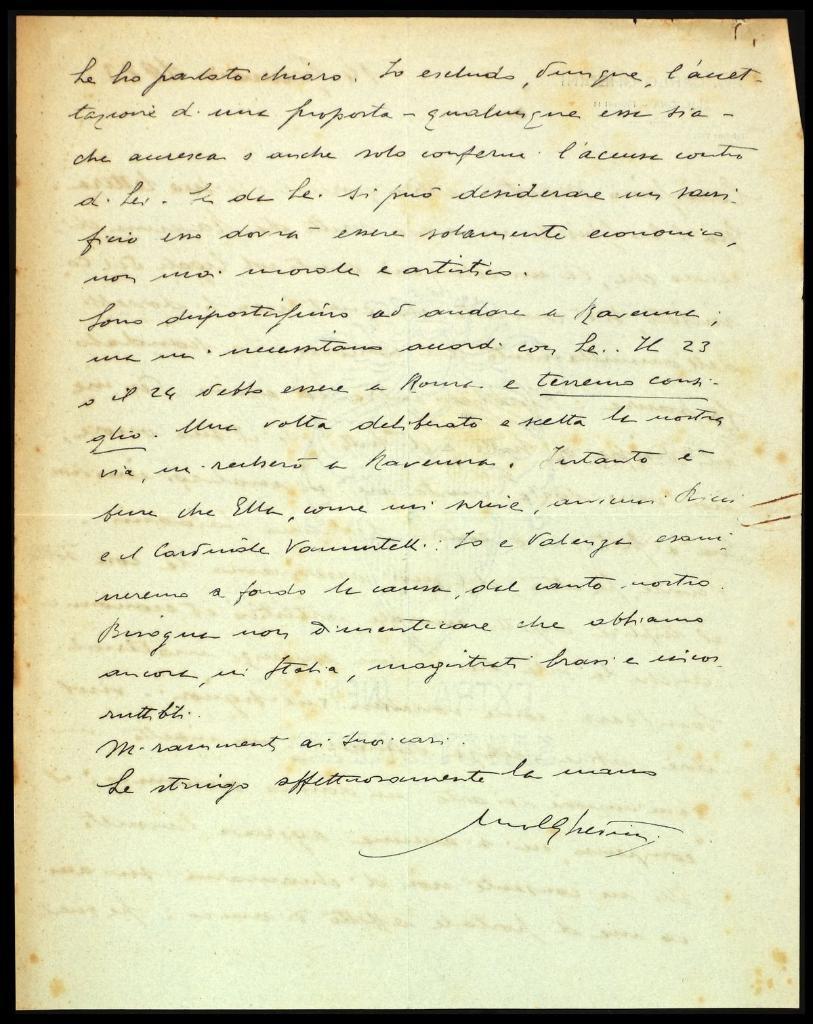 Le ho parlato chiaro. Io escludo, dunque, l'accet-
tazione di una proposta - qualunque essa sia -
che accresca o anche solo confermi l'accusa contro
di Lei. Se da Lei si può desiderare un sacri-
ficio esso dovrà essere solamente economico,
non mai morale e artistico.
Sono dispostissimo ad andare a Ravenna;
ma mi necessitano accordi con Lei. Il 23
o il 24 debbo essere a Roma e terremo consi-
glio. Una volta deliberato e scelta la nostra
via, mi recherò a Ravenna. Intanto è
bene che Ella, come mi scrive, avvicini Ricci
e il Cardinale Vannutelli: Io e Valenza esami-
neremo a fondo la causa, dal canto nostro.
Bisogna non dimenticare che abbiamo
ancora, in Italia, magistrati bravi e incor-
ruttibili.
Mi rammenti ai Suoi cari.
Le stringo affettuosamente la mano